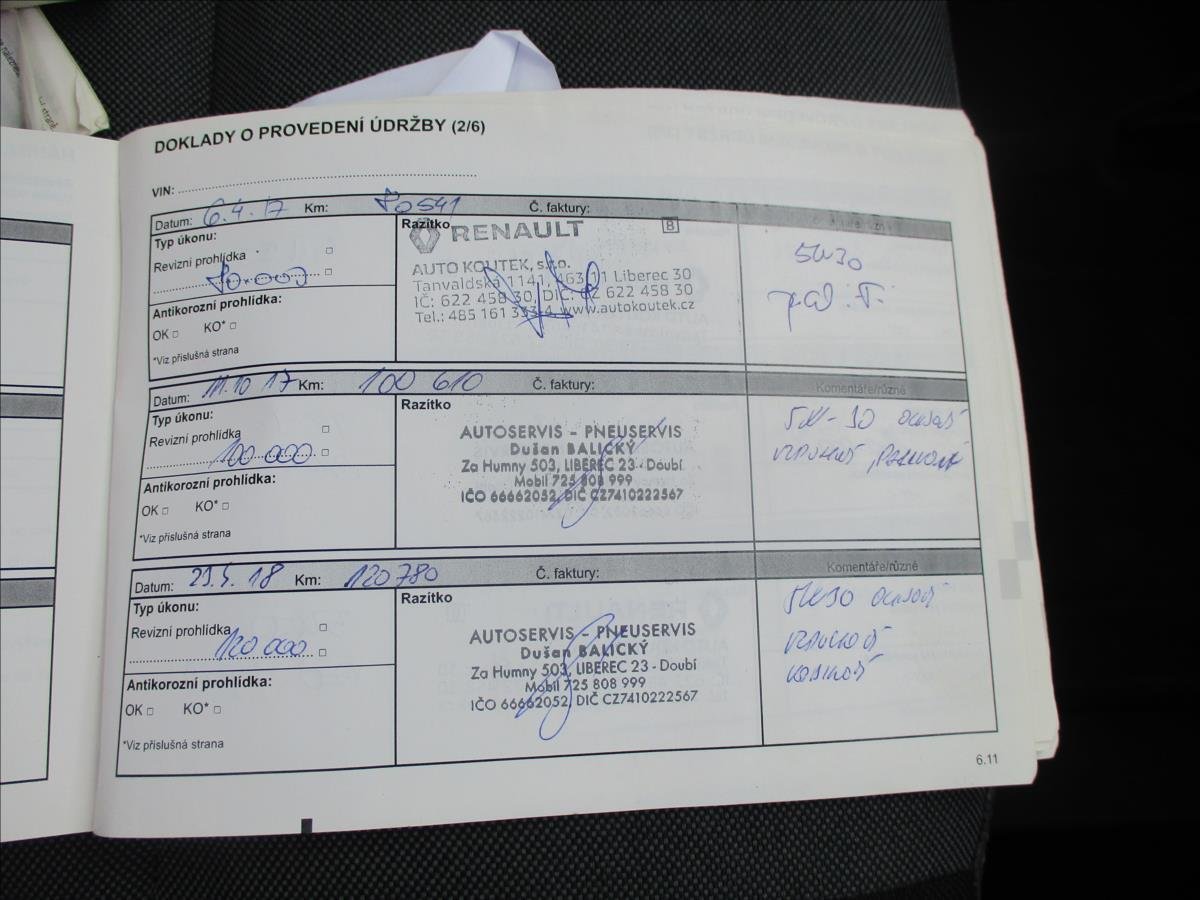 DOKLADY O PROVEDENÍ ÚDRŽBY (2/6)
VIN:
Datum: 6.4.17 Km: 80541 Č. faktury:
Typ úkonu:
Revizní prohlídka
80.000
Antikorozní prohlídka:
OK □ KO* □
*Viz příslušná strana
Razítko
RENAULT B
AUTO KOUTEK, s.r.o.
Tanvaldská 1141, 463 11 Liberec 30
IČ: 622 458 30, DIČ: CZ 622 458 30
Tel.: 485 161 333-4, www.autokoutek.cz
5W30
Datum: 11.10 17 Km: 100 610 Č. faktury: Komentáře/různé
Typ úkonu:
Revizní prohlídka
100.000
Antikorozní prohlídka:
OK □ KO* □
*Viz příslušná strana
Razítko
AUTOSERVIS - PNEUSERVIS
Dušan BALICKÝ
Za Humny 503, LIBEREC 23 - Doubí
Mobil 725 808 999
IČO 66662052, DIČ CZ7410222567
5W-30
Datum: 29.5. 18 Km: 120 780 Č. faktury: Komentáře/různé
Typ úkonu:
Revizní prohlídka
120 000
Antikorozní prohlídka:
OK □ KO* □
*Viz příslušná strana
Razítko
AUTOSERVIS - PNEUSERVIS
Dušan BALICKÝ
Za Humny 503, LIBEREC 23 - Doubí
Mobil 725 808 999
IČO 66662052, DIČ CZ7410222567
5W30
6.11